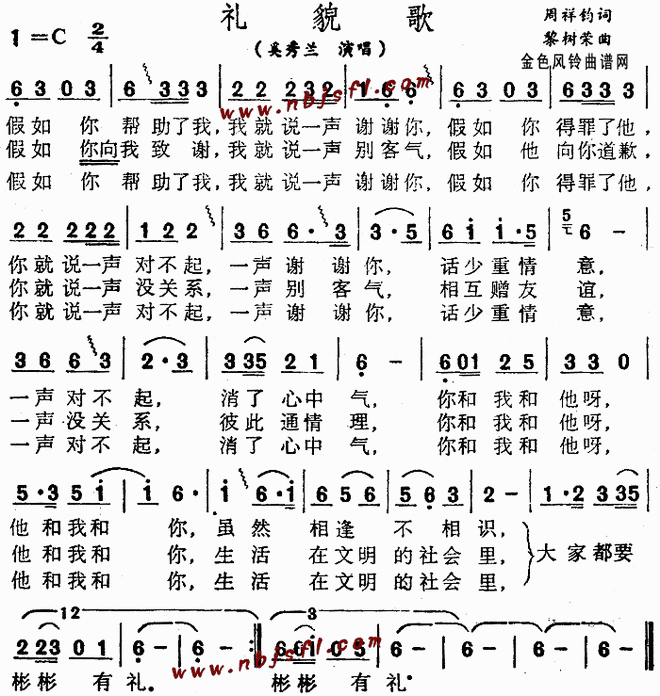 礼貌歌
1=C 2/4
(奚秀兰 演唱)
周祥钧词
黎树荣曲
金色风铃曲谱网
6 3 0 3 | 6 3 3 3 | 2 2 2 3 2 | 1 6 6 | 6 3 0 3 | 6 3 3 3 3 |
www.nbjsfl.com
假如 你 帮 助了我,我就 说一声 谢谢你, 假如 你 得罪了他,
假如 你向我致 谢,我就 说一声 别客气, 假如 他 向你道歉,
假如 你 帮 助了我,我就 说一声 谢谢你, 假如 你 得罪了他,
2 2 2 2 2 | 1 2 2 | 3 6 6 · 3 | 3 · 5 | 6 i i · 5 | 6 - |
你就说一声 对不起, 一声 谢 谢 你, 话少重情 意,
你就说一声 没关系, 一声 别 客 气, 相互赠友 谊,
你就说一声 对不起, 一声 谢 谢 你, 话少重情 意,
3 6 6 3 | 2 · 3 | 3 3 5 2 1 | 6 - | 6 0 1 2 5 | 3 3 0 |
一声 对不 起, 消了 心中 气, 你和 我和 他呀,
一声 没关 系, 彼此 通情 理, 你和 我和 他呀,
一声 对不 起, 消了 心中 气, 你和 我和 他呀,
5 · 3 5 i | i 6 · | i 6 · i | 6 5 5 | 5 6 3 | 2 - | 1 · 2 3 3 5 |
他 和我和 你, 虽 然 相逢 不 相识,
他 和我和 你, 生 活 在文明 的社会 里, 大 家都要
他 和我和 你, 生 活 在文明 的社会 里,
12 3
2 2 3 0 1 | 6 - | 6 - :‖ 6 0 i 0 5 | 6 - | 6 - | 6 - | 6 - ‖
www.nbjsfl.com
彬彬 有 礼。 彬彬 有 礼。